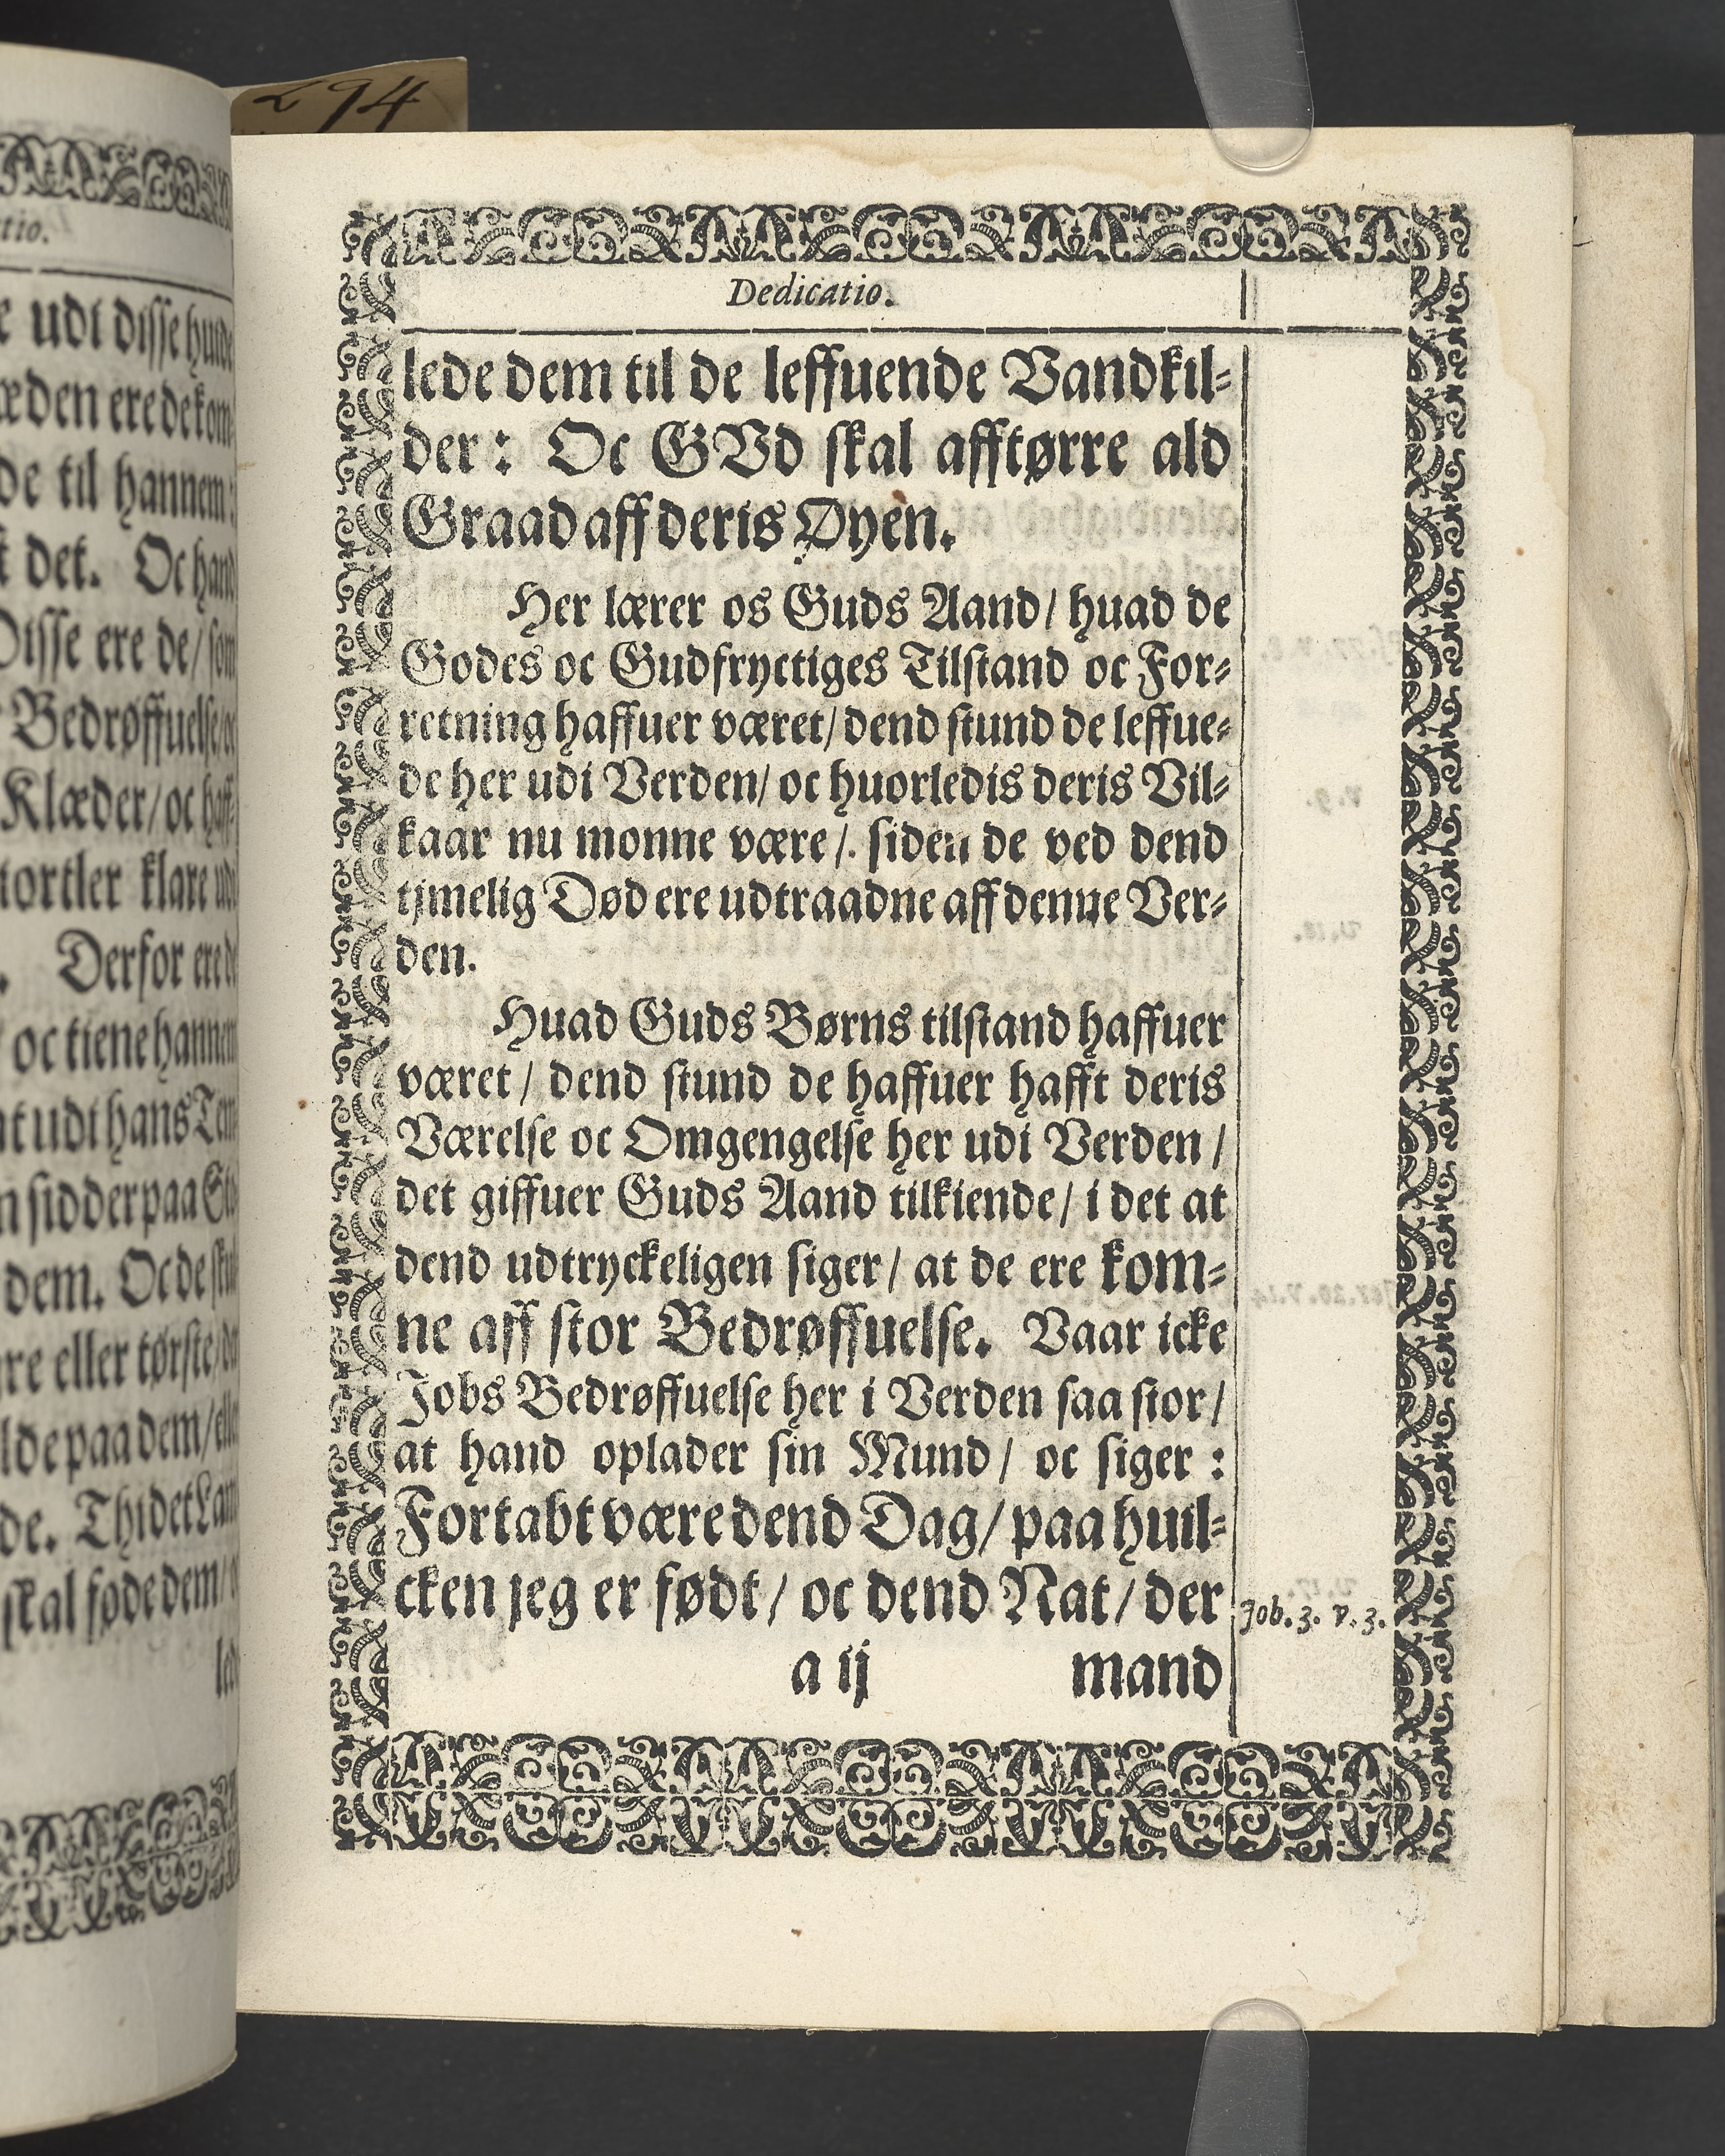 294
tio.
e udi disse huide
den ere de kom
de til hannem:
det. Oc hand
Disse ere de/ som
Bedrøffuelse/
Klæder/ oc haff-
klare udi
Derfor ere de
oc tiene hannem
udi hans Tem
sidder paa
dem. Oc de skul
eller tørste/
paa dem/
de. Thi det Lam
skal føde dem/
Dedicatio.
lede dem til de leffuende Vandkil-
der: Oc GVd skal afftørre ald
Graad aff deris Øyen.
Her lærer os Guds Aand/ huad de
Godes oc Gudfryctiges Tilstand oc For-
retning haffuer været/ dend stund de leffue-
de her udi Verden/ oc huorledis deris Vil-
kaar nu monne være/. siden de ved dend
tjmelig Død ere udtraadne aff denne Ver-
den.
Huad Guds Børns tilstand haffuer
været/ dend stund de haffuer hafft deris
Værelse oc Omgengelse her udi Verden/
det giffuer Guds Aand tilkiende/ i det at
dend udtryckeligen siger/ at de ere kom-
ne aff stor Bedrøffuelse. Vaar icke
Jobs Bedrøffuelse her i Verden saa stor/
at hand oplader sin Mund/ oc siger:
Fortabt være dend Dag/ paa huil-
cken jeg er født/ oc dend Nat/ der
Job. 3. v. 3.
a ij mand